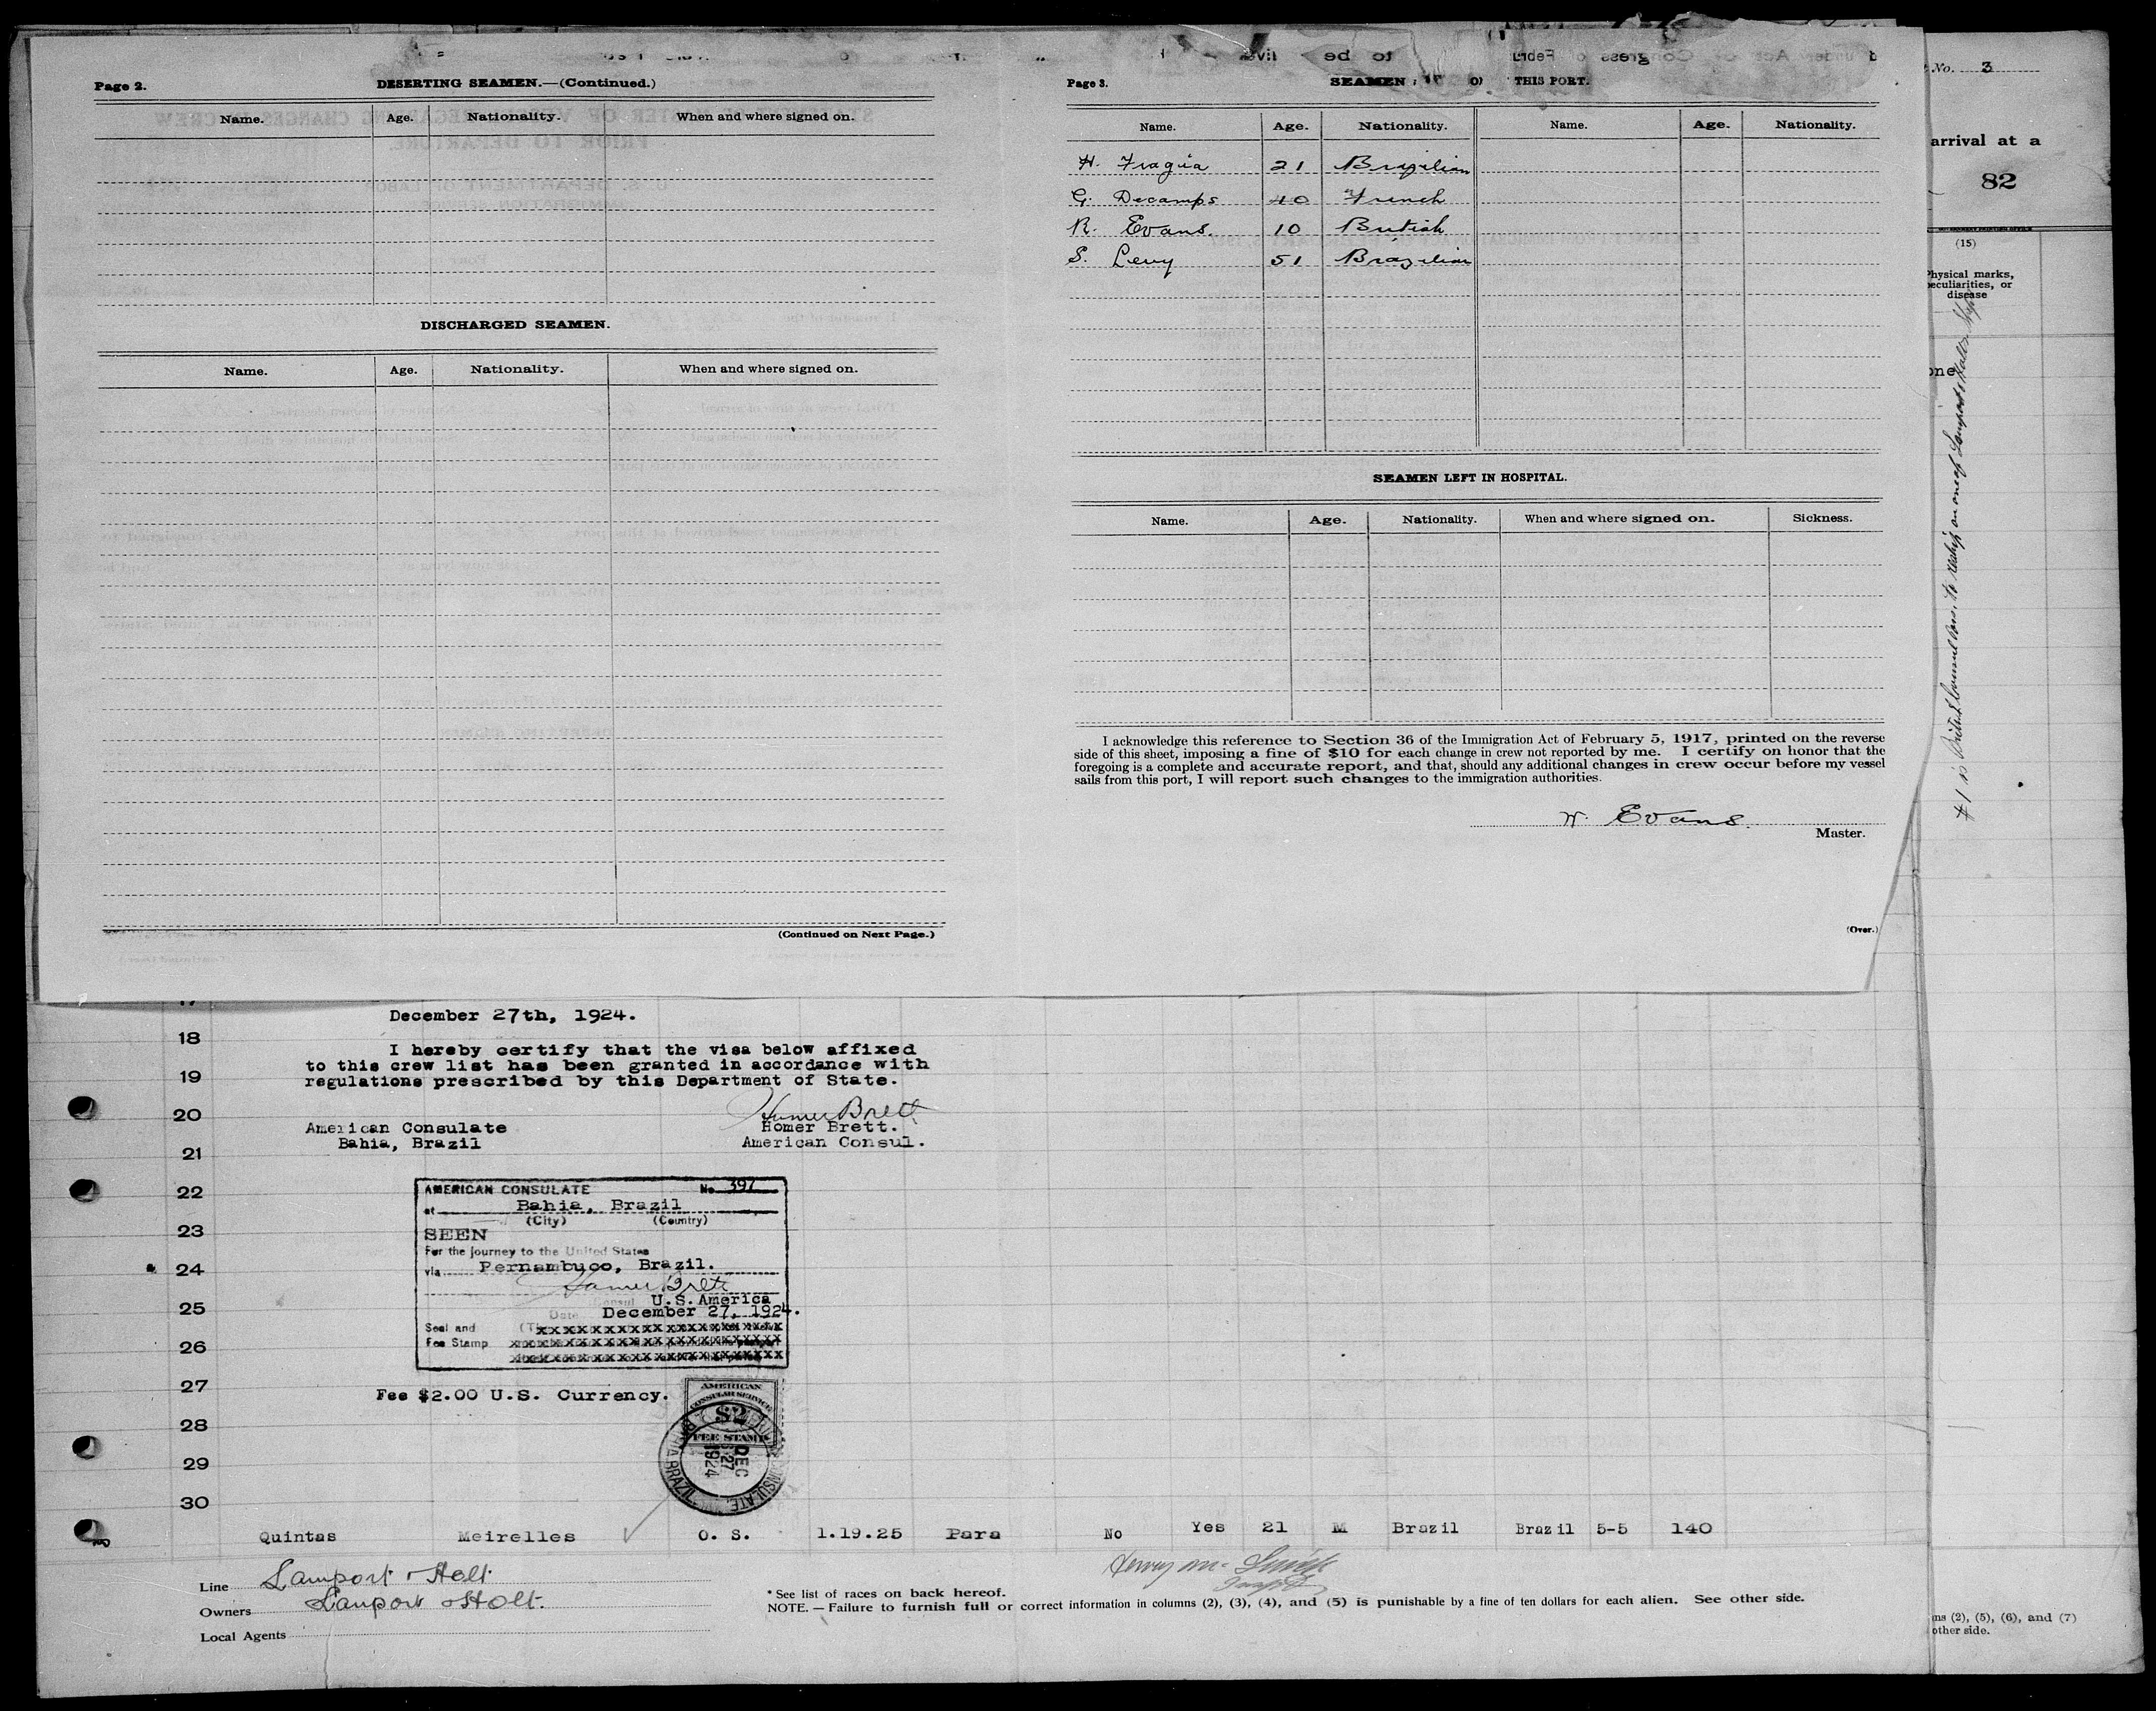 Page 2.
DESERTING SEAMEN.—(Continued.)
Name. Age. Nationality. When and where signed on.
DISCHARGED SEAMEN.
Name. Age. Nationality. When and where signed on.
(Continued on Next Page.)
Page 3.
SEAMEN THIS PORT.
Name. Age. Nationality. Name. Age. Nationality.
H. Fragúa 21 Brazilian
G. Decamps 40 French
R. Evans. 10 British
S. Levy 51 Brazilian
SEAMEN LEFT IN HOSPITAL.
Name. Age. Nationality. When and where signed on. Sickness.
I acknowledge this reference to Section 36 of the Immigration Act of February 5, 1917, printed on the reverse
side of this sheet, imposing a fine of $10 for each change in crew not reported by me. I certify on honor that the
foregoing is a complete and accurate report, and that, should any additional changes in crew occur before my vessel
sails from this port, I will report such changes to the immigration authorities.
W. Evans.
Master.
(Over.)
No. 3
arrival at a
82
(15)
Physical marks,
peculiarities, or
disease
one
17
December 27th, 1924.
18
I hereby certify that the visa below affixed
to this crew list has been granted in accordance with
19
regulations prescribed by this Department of State.
20
Homer Brett
American Consulate Homer Brett.
Bahia, Brazil American Consul.
21
22
AMERICAN CONSULATE No. 397
at Bahia, Brazil
(City) (Country)
23
SEEN
For the journey to the United States
24
via Pernambuco, Brazil.
Homer Brett
Consul U.S. America
25
Date December 27, 1924.
Seal and
26
Fee Stamp
27
Fee $2.00 U.S. Currency.
AMERICAN
CONSULAR SERVICE
$2
FEE STAMP
DEC
27
1924
BAHIA BRAZIL
28
29
30
Quintas Meirelles O. S. 1.19.25 Para No Yes 21 M Brazil Brazil 5-5 140
Line Lamport & Holt
Owners Lamport & Holt.
Local Agents
* See list of races on back hereof.
NOTE.—Failure to furnish full or correct information in columns (2), (3), (4), and (5) is punishable by a fine of ten dollars for each alien. See other side.
(2), (5), (6), and (7)
other side.